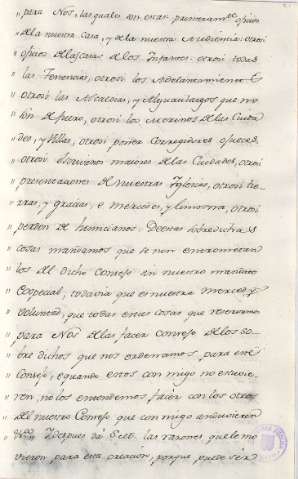 " para Nos, las quales son estas primeramte. oficios
" de la nuestra Casa, y de la nuestra Audiencia otrosi
" oficios de las casas de los Infantes otrosi todas
" las Tenencias, otrosi los Adelantamientos
" otrosi las Alcaldias, y Alguacilazgos que no
" son de fuero, otrosi los Merinos de las Ciuda
" des, y Villas, otrosi poner Corregidores o Jueces,
" otrosi Escrivanos maiores de las Ciudades, otrosi
" presentaciones de nuestras Iglesias, otrosi tie
" rras, y gracias, e mercedes, y limosna, otrosi
" perdon de homicianos. De estas sobredichas
" cosas mandamos que se non entrometan
" los del dicho Consejo sin nuestro mandato
" especial, todavia que es nuestra merced, y
" voluntad, que todas estas cosas que reservamos
" para Nos de las facer con consejo de los so
" bre dichos que nos ordenamos para este
" Consejo, e quando estos con migo no estuvie
" ren, no los entendemos facer con los otros
" de nuestro Consejo que con migo anduvieren
" Despues dá S. ect. las razones que le mo
" vieron para esta creacion, porque puede ser